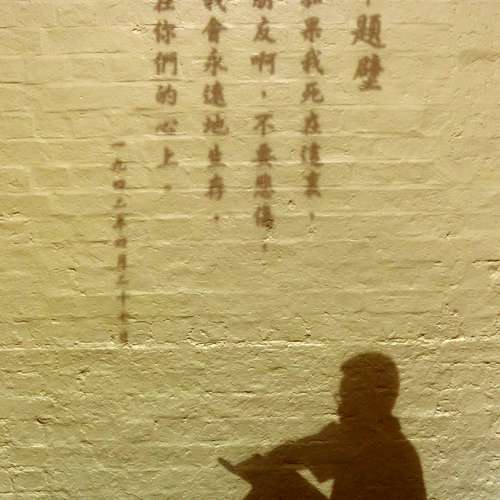 題壁
如果我死在這裏，
朋友啊，不要悲傷，
我會永遠地生存，
在你們的心上。
一九四二年四月二十七日